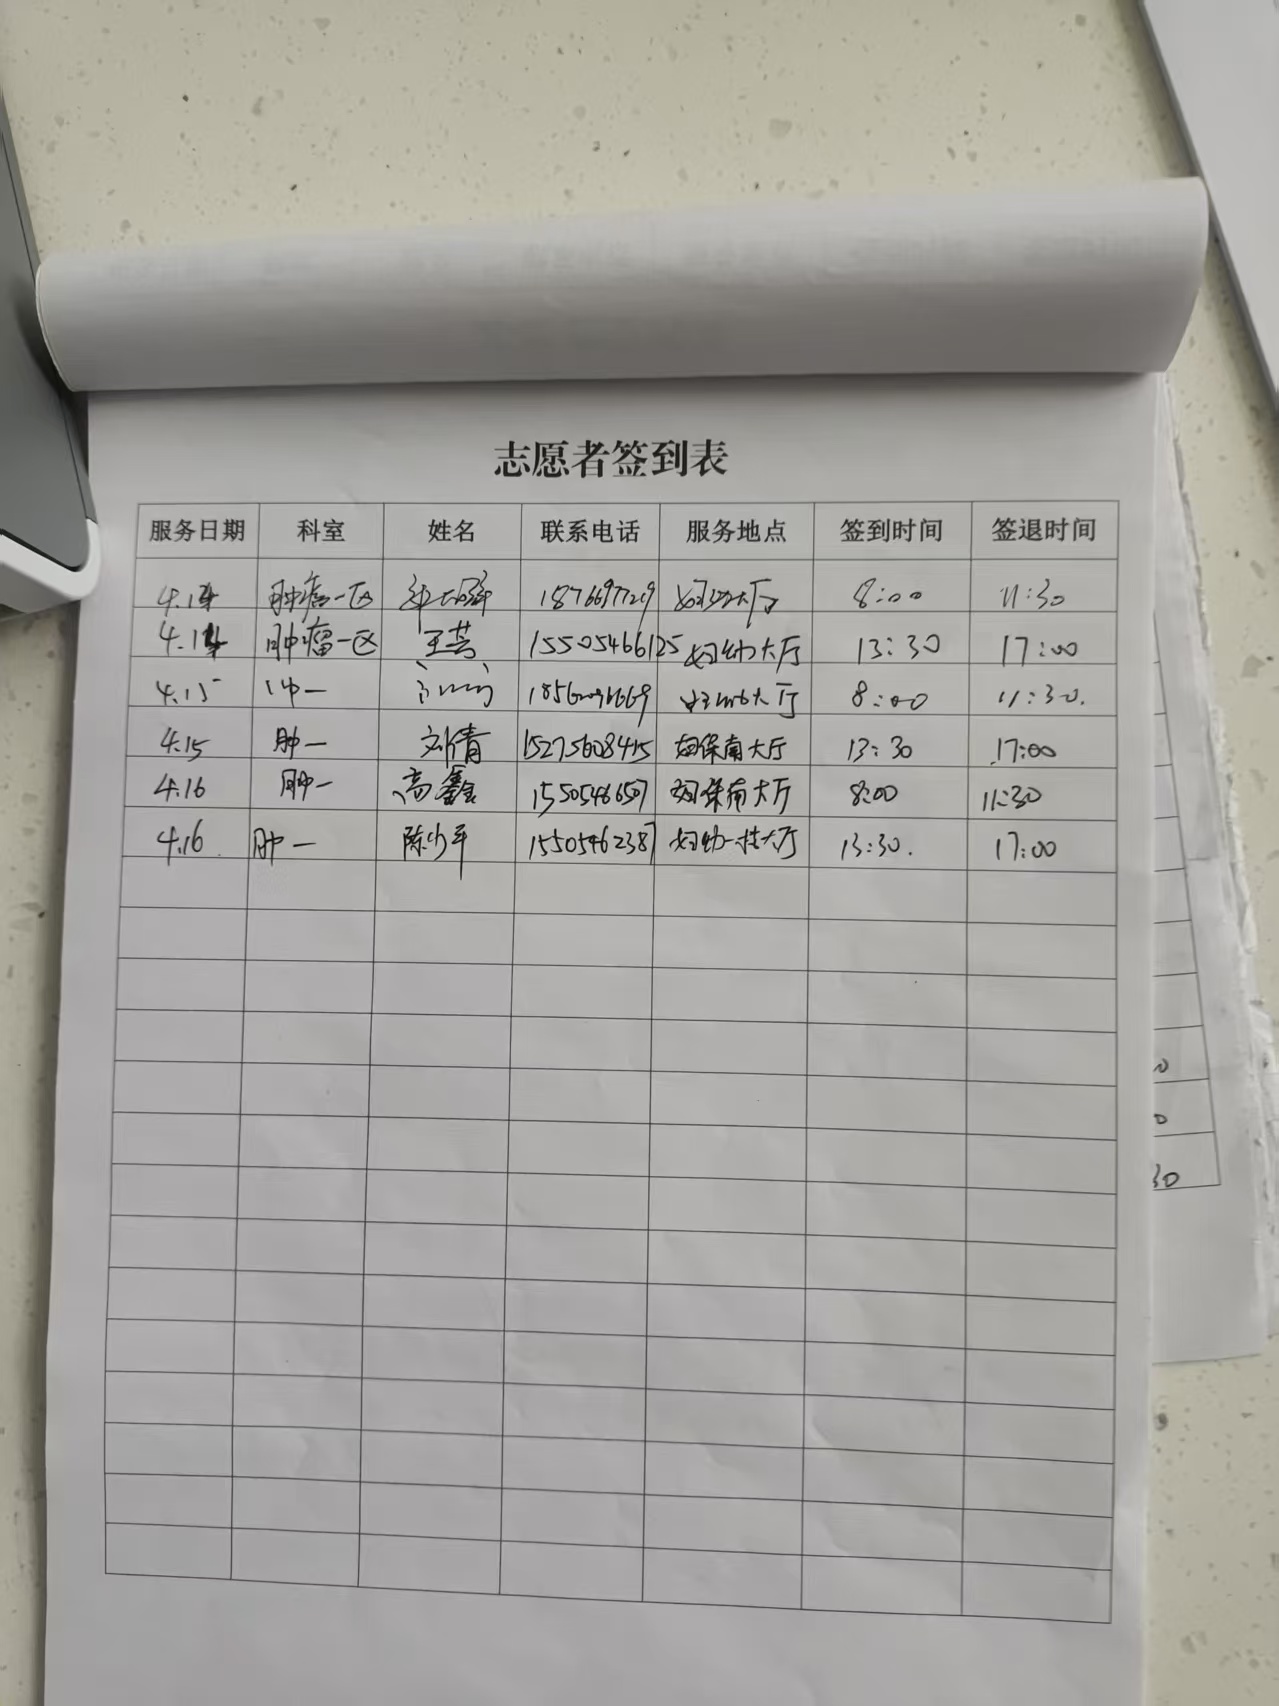 志愿者签到表
服务日期 科室 姓名 联系电话 服务地点 签到时间 签退时间
4.14 肿瘤一区 18766977219 妇幼大厅 8:00 11:30
4.14 肿瘤一区 王芸 15505466125 妇幼大厅 13:30 17:00
4.15 肿一 大厅 8:00 11:30.
4.15 肿一 刘倩 15275608415 妇保南大厅 13:30 17:00
4.16 肿一 高鑫 15505466507 妇保南大厅 8:00 11:30
4.16 肿一 陈少平 15505462387 妇幼一楼大厅 13:30. 17:00
30